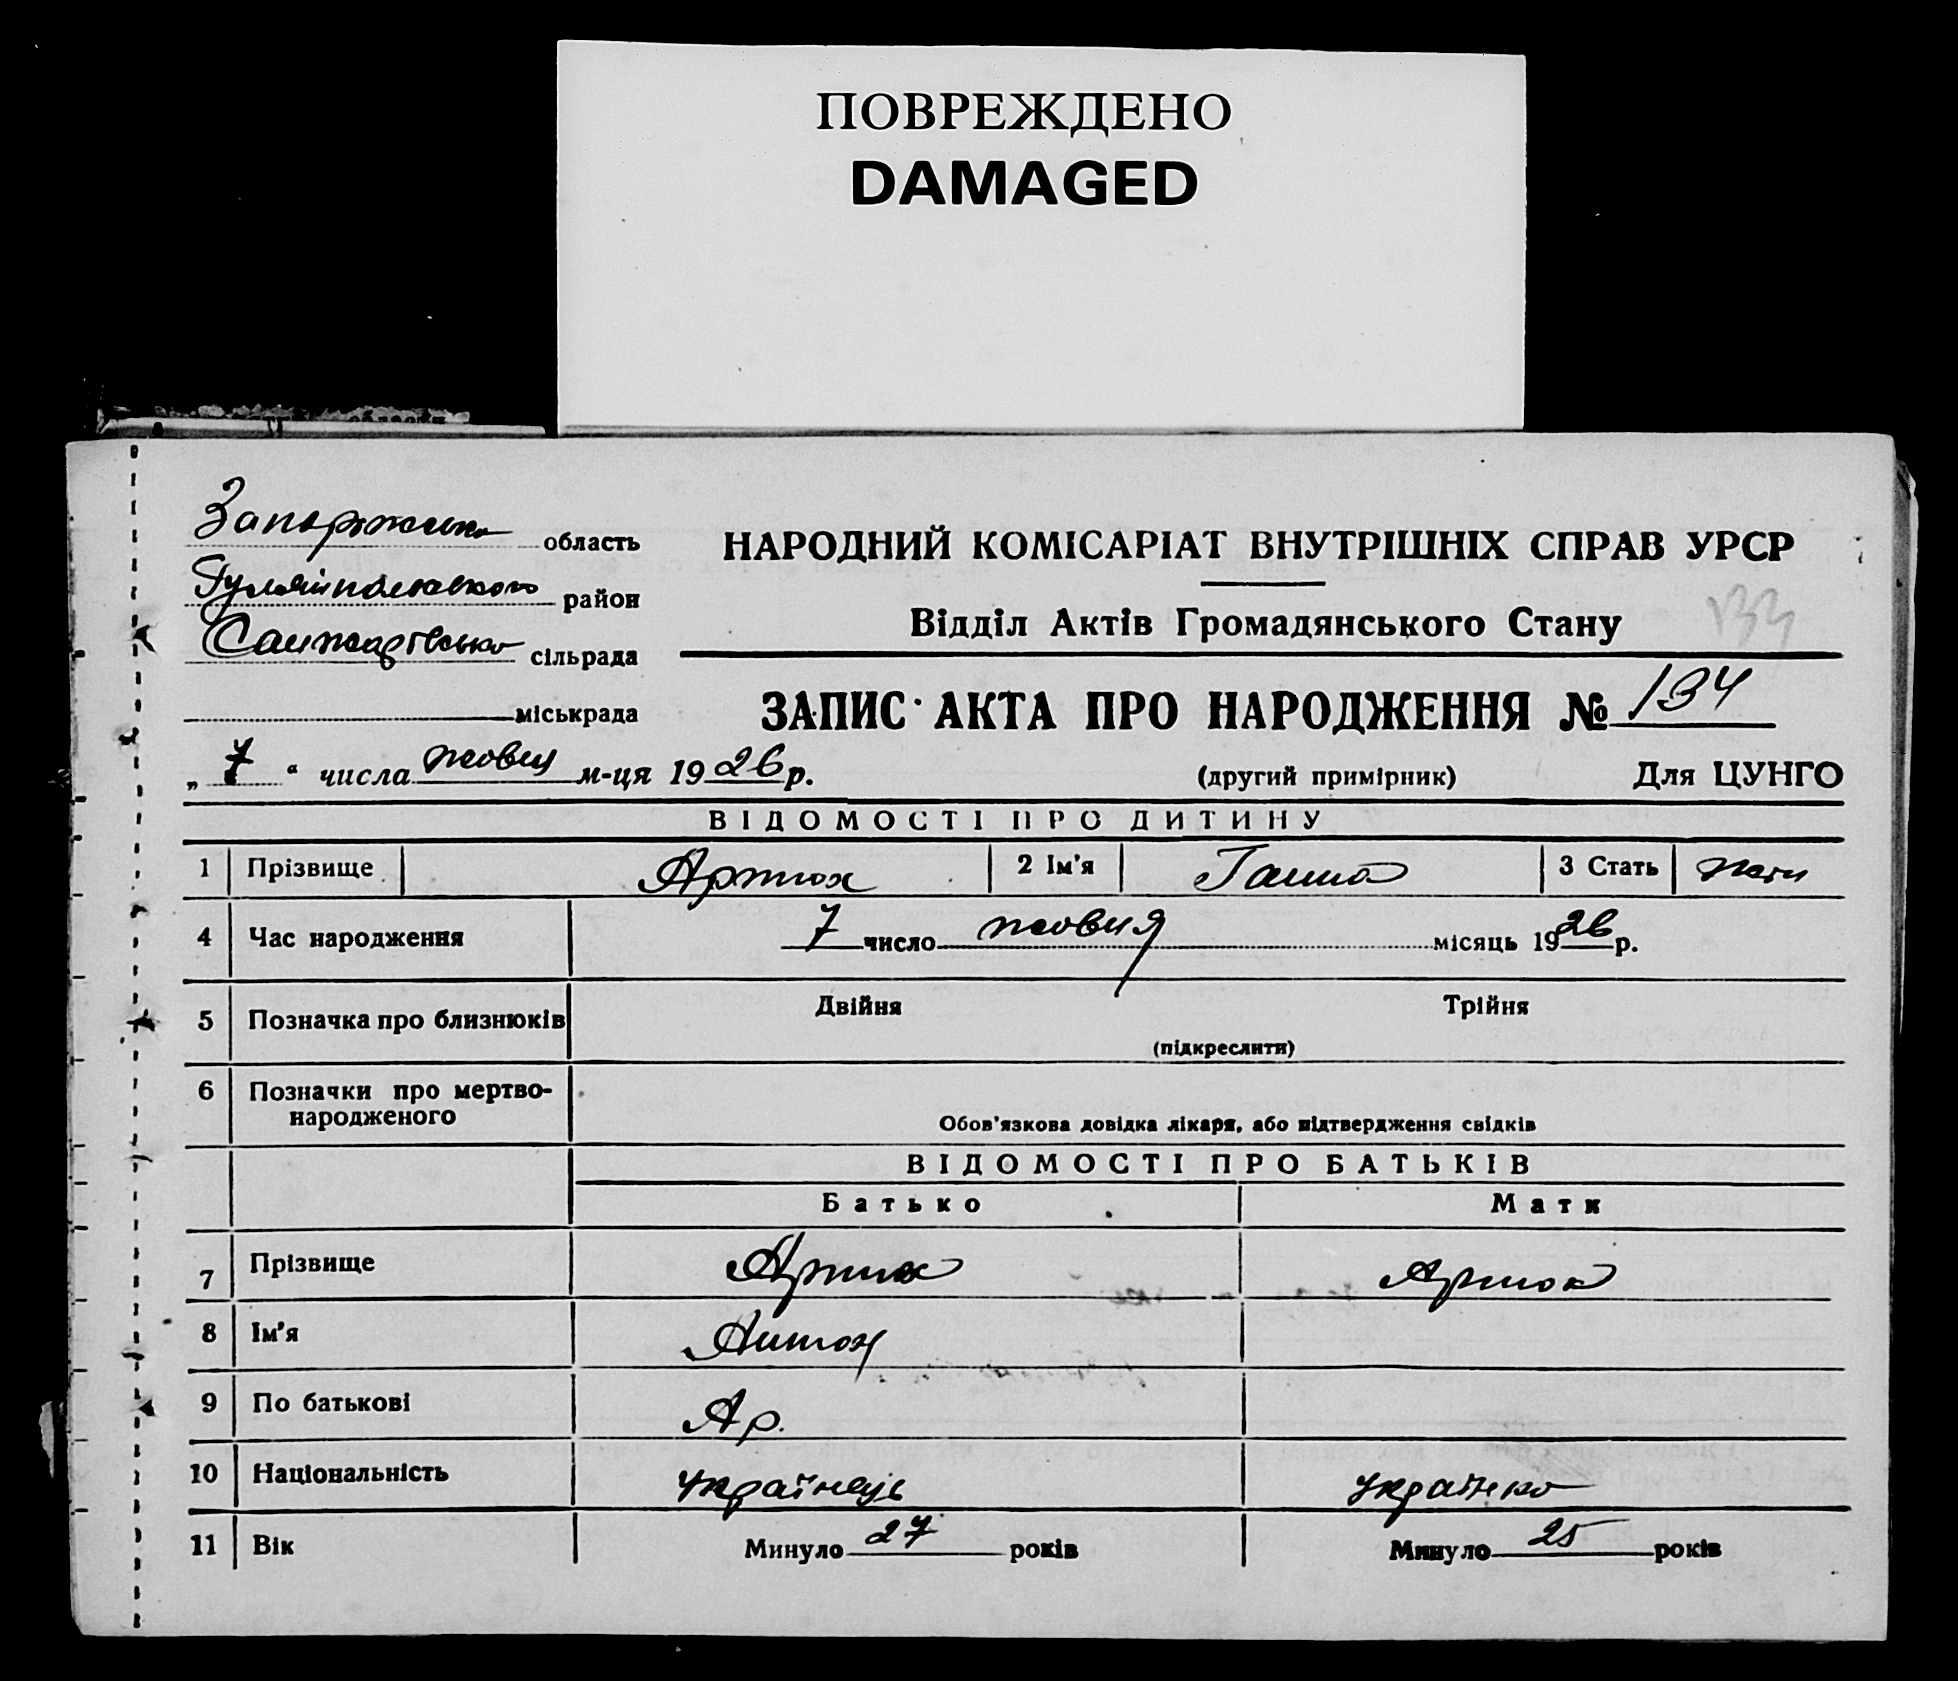 ПОВРЕЖДЕНО
DAMAGED
Запоріжська область
Гуляйпольського район
Санжарівська сільрада
міськрада
НАРОДНИЙ КОМІСАРІАТ ВНУТРІШНІХ СПРАВ УРСР
Відділ Актів Громадянського Стану
133
ЗАПИС АКТА ПРО НАРОДЖЕННЯ № 134
„ 7 “ числа жовня м-ця 1926 р.
(другий примірник) Для ЦУНГО
ВІДОМОСТІ ПРО ДИТИНУ
1 Прізвище Артюх 2 Ім'я Ганна 3 Стать
4 Час народження 7 число жовня місяць 1926 р.
5 Позначка про близнюків Двійня Трійня
(підкреслити)
6 Позначки про мертво-
народженого
Обов'язкова довідка лікаря, або підтвердження свідків
ВІДОМОСТІ ПРО БАТЬКІВ
Батько Мати
7 Прізвище Артюх Артюх
8 Ім'я Антон
9 По батькові Ар.
10 Національність українець українка
11 Вік Минуло 27 років Минуло 25 років